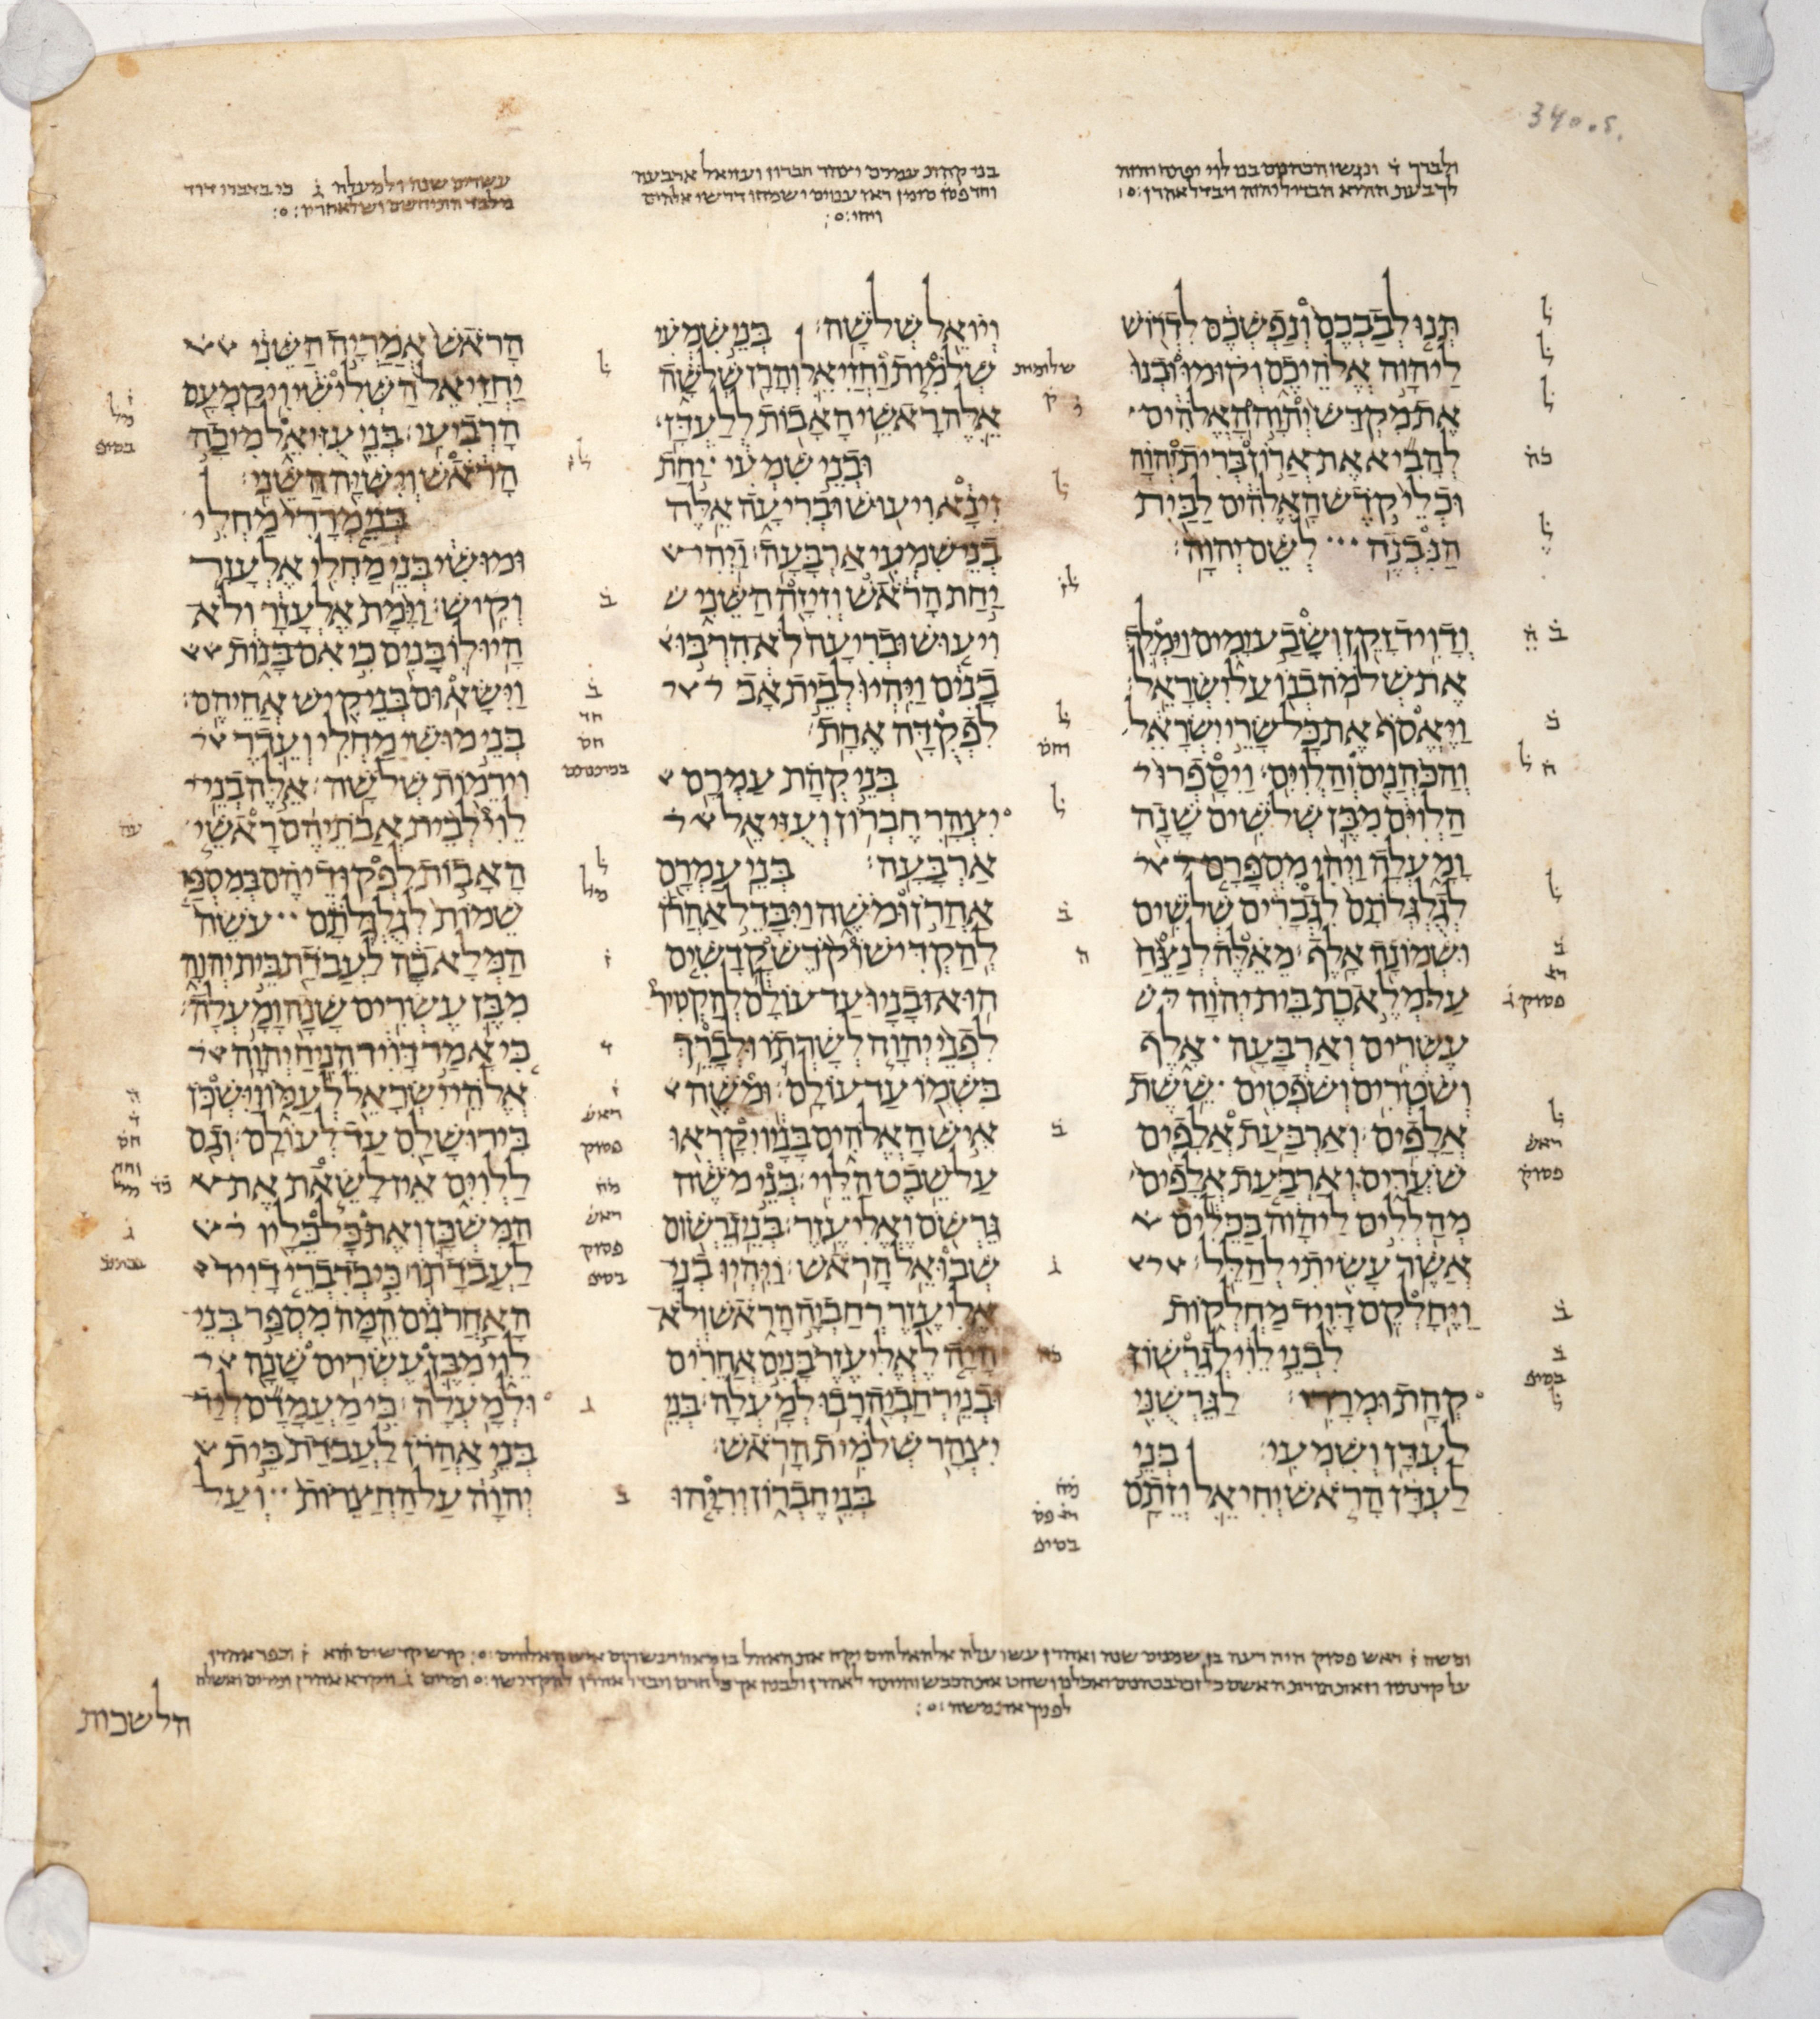 ולברך ד ונגשו הכהנים בני לוי
בעת ההיא הבדיל יהוה ויבדל אהרן
בני קהת עמרם יצהר חברון ועזיאל ארבעה
וחד פסוק סימן ראו ענוים ישמחו דרשי אלהים
ויחי
עשרים שנה ולמעלה ג כי בדברי דויד
מלבד התיחשם ושלאחריו
תנו לבבכם ונפשכם לדרוש
ליהוה אלהיכם וקומו ובנו
את מקדש יהוה האלהים
להביא את ארון ברית יהוה
וכלי קדש האלהים לבית
הנבנה לשם יהוה
ודויד זקן ושבע ימים וימלך
את שלמה בנו על ישראל
ויאסף את כל שרי ישראל
והכהנים והלוים ויספרו
הלוים מבן שלשים שנה
ומעלה ויהי מספרם
לגלגלתם לגברים שלשים
ושמונה אלף מאלה לנצח
על מלאכת בית יהוה
עשרים וארבעה אלף
ושטרים ושפטים ששת
אלפים וארבעת אלפים
שערים וארבעת אלפים
מהללים ליהוה בכלים
אשר עשיתי להלל
ויחלקם דויד מחלקות
לבני לוי לגרשון
קהת ומררי לגרשני
לעדן ושמעי בני
לעדן הראש יחיאל וזתם
ויואל שלשה בני שמעי
שלמות וחזיאל והרן שלשה
אלה ראשי האבות ללעדן
ובני שמעי יחת
זינא ויעוש ובריעה אלה
בני שמעי ארבעה ויהי
יחת הראש וזיזה השני
ויעוש ובריעה לא הרבו
בנים ויהיו לבית אב
לפקדה אחת
בני קהת עמרם
יצהר חברון ועזיאל
ארבעה בני עמרם
אהרן ומשה ויבדל אהרן
להקדישו קדש קדשים
הוא ובניו עד עולם להקטיר
לפני יהוה לשרתו ולברך
בשמו עד עולם ומשה
איש האלהים בניו יקראו
על שבט הלוי בני משה
גרשם ואליעזר בני גרשום
שבואל הראש ויהיו בני
אליעזר רחביה הראש ולא
היה לאליעזר בנים אחרים
ובני רחביה רבו למעלה בני
יצהר שלמית הראש
בני חברון יריהו
הראש אמריה השני
יחזיאל השלישי ויקמעם
הרביעי בני עזיאל מיכה
הראש וישיה השני
בני מררי מחלי
ומושי בני מחלי אלעזר
וקיש וימת אלעזר ולא
היו לו בנים כי אם בנות
וישאום בני קיש אחיהם
בני מושי מחלי ועדר
וירמות שלשה אלה בני
לוי לבית אבתיהם ראשי
האבות לפקודיהם במספר
שמות לגלגלתם עשה
המלאכה לעבדת בית יהוה
מבן עשרים שנה ומעלה
כי אמר דויד הניח יהוה
אלהי ישראל לעמו וישכן
בירושלם עד לעולם וגם
ללוים אין לשאת את
המשכן ואת כל כליו
לעבדתו כי בדברי דויד
האחרנים המה מספר בני
לוי מבן עשרים שנה
ולמעלה כי מעמדם ליד
בני אהרן לעבדת בית
יהוה על החצרות ועל
שלומית
ק
ראש
פסוק
ומשה ז ראש פסוק היה רעה בן שמנים שנה ואהרן עלה אל האלהים יקח את האהל קדש קדשים הוא
לפניך את משה
הלשכות
340.r.